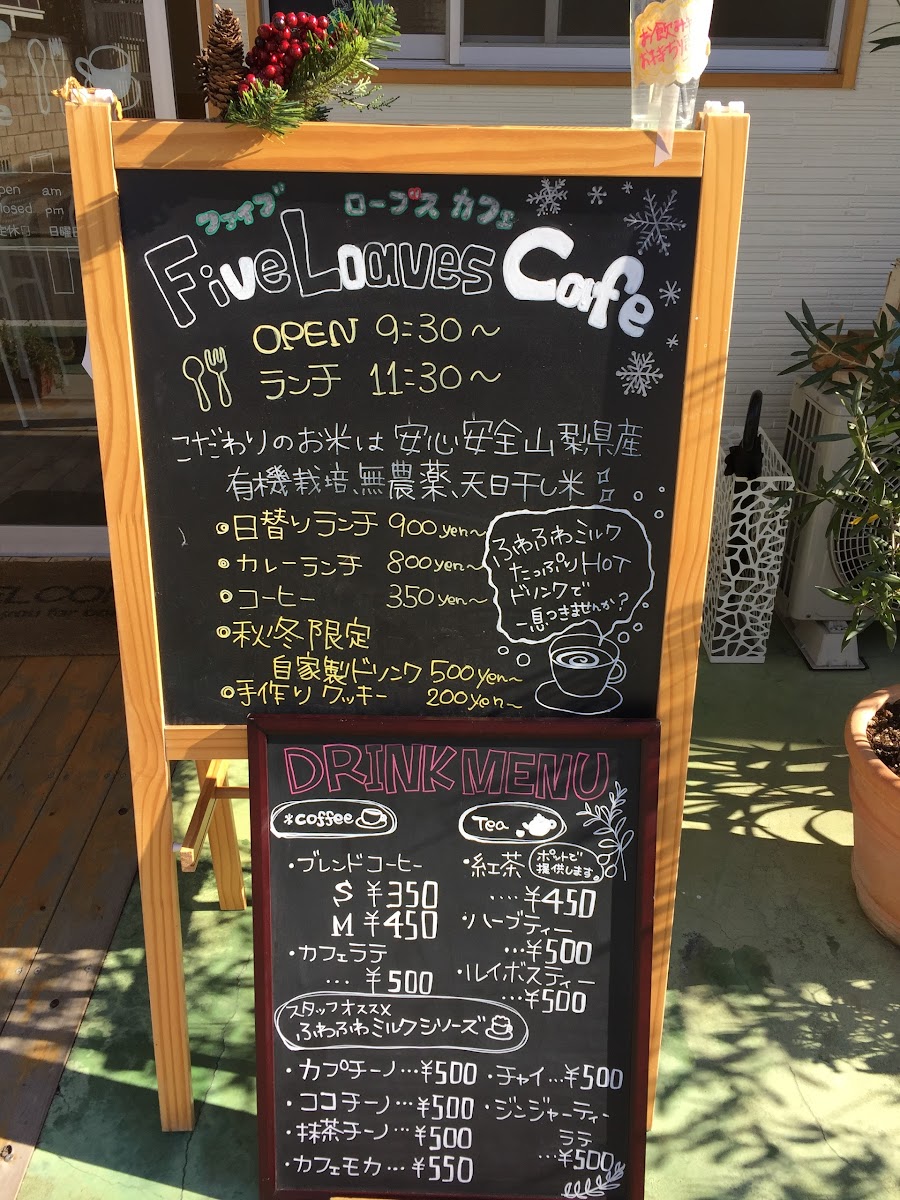 お飲み
お持ち
pen am
losed pm
定休日 日曜日
ファイブ ローブス カフェ
Five Loaves Cafe
OPEN 9:30~
ランチ 11:30~
こだわりのお米は安心安全山梨県産
有機栽培、無農薬、天日干し米
◎日替りランチ 900yen~
◎カレーランチ 800yen~
◎コーヒー 350yen~
◎秋冬限定
自家製ドリンク 500yen~
◎手作りクッキー 200yen~
ふわふわミルク
たっぷりHOT
ドリンクで
一息つきませんか?
DRINK MENU
*coffee
・ブレンドコーヒー
S ¥350
M ¥450
・カフェラテ
... ¥500
Tea
・紅茶 ポットで
提供します。
....¥450
・ハーブティー
...¥500
・ルイボスティー
...¥500
スタッフオススメ
ふわふわミルクシリーズ
・カプチーノ...¥500
・ココチーノ...¥500
・抹茶チーノ...¥500
・カフェモカ...¥550
・チャイ...¥500
・ジンジャーティー
ラテ
...¥500